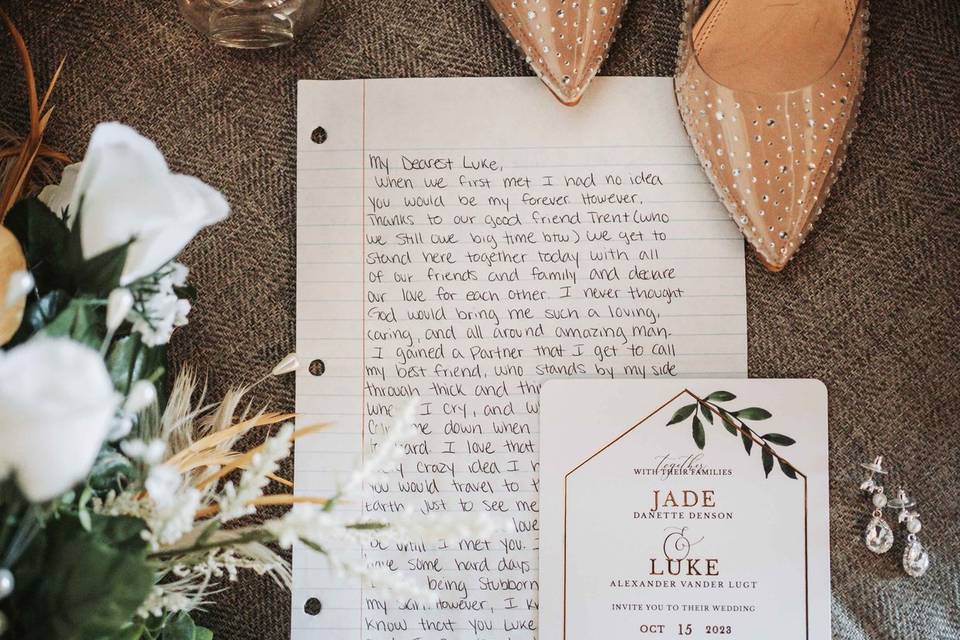 My Dearest Luke,
When we first met I had no idea
you would be my forever. However,
Thanks to our good friend Trent (who
we still owe big time btw) we get to
stand here together today with all
of our friends and family and declare
our love for each other. I never thought
God would bring me such a loving,
caring, and all around amazing man.
I gained a Partner that I get to call
my best friend, who stands by my side
through thick and
I cry, and
me down when
I love that
crazy idea I
you would travel to
Earth just to see me
love
until I met you.
some hard days
being Stubborn
my However, I
know that you Luke
together
WITH THEIR FAMILIES
JADE
DANETTE DENSON
&
LUKE
ALEXANDER VANDER LUGT
INVITE YOU TO THEIR WEDDING
OCT 15 2023